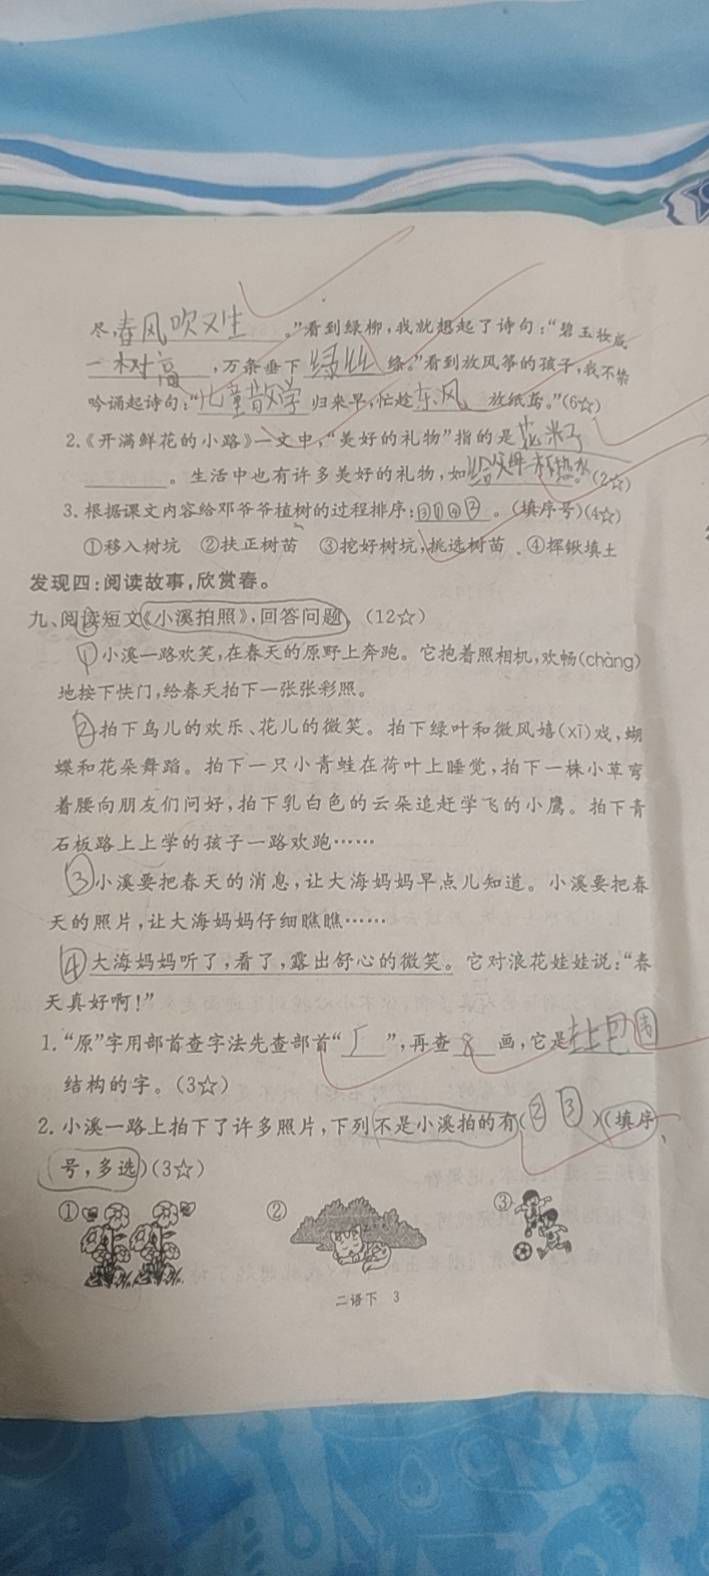 尽，春风吹又生。”看到绿柳，我就想起了诗句：“碧玉妆成
一树高，万条垂下绿丝绦。”看到放风筝的孩子，我不禁
吟诵起诗句：“儿童散学归来早，忙趁东风放纸鸢。”(6☆)
2.《开满鲜花的小路》一文中，“美好的礼物”指的是花籽
。生活中也有许多美好的礼物，如给父母一杯热水。(2☆)
3. 根据课文内容给邓爷爷植树的过程排序：③①④②。(填序号)(4☆)
①移入树坑 ②扶正树苗 ③挖好树坑，挑选树苗 ④挥锹填土
发现四：阅读故事，欣赏春。
九、阅读短文《小溪拍照》，回答问题。(12☆)
①小溪一路欢笑，在春天的原野上奔跑。它抱着照相机，欢畅(chàng)
地按下快门，给春天拍下一张张彩照。
②拍下鸟儿的欢乐、花儿的微笑。拍下绿叶和微风嬉(xī)戏，蝴
蝶和花朵舞蹈。拍下一只小青蛙在荷叶上睡觉，拍下一株小草弯
着腰向朋友们问好，拍下乳白色的云朵追赶学飞的小鹰。拍下青
石板路上上学的孩子一路欢跑……
③小溪要把春天的消息，让大海妈妈早点儿知道。小溪要把春
天的照片，让大海妈妈仔细瞧瞧……
④大海妈妈听了，看了，露出舒心的微笑。它对浪花娃娃说：“春
天真好啊！”
1. “原”字用部首查字法先查部首“厂”，再查8画，它是半包围
结构的字。(3☆)
2. 小溪一路上拍下了许多照片，下列不是小溪拍的有(② ③)(填序
号，多选)(3☆)
① ② ③
二语下 3